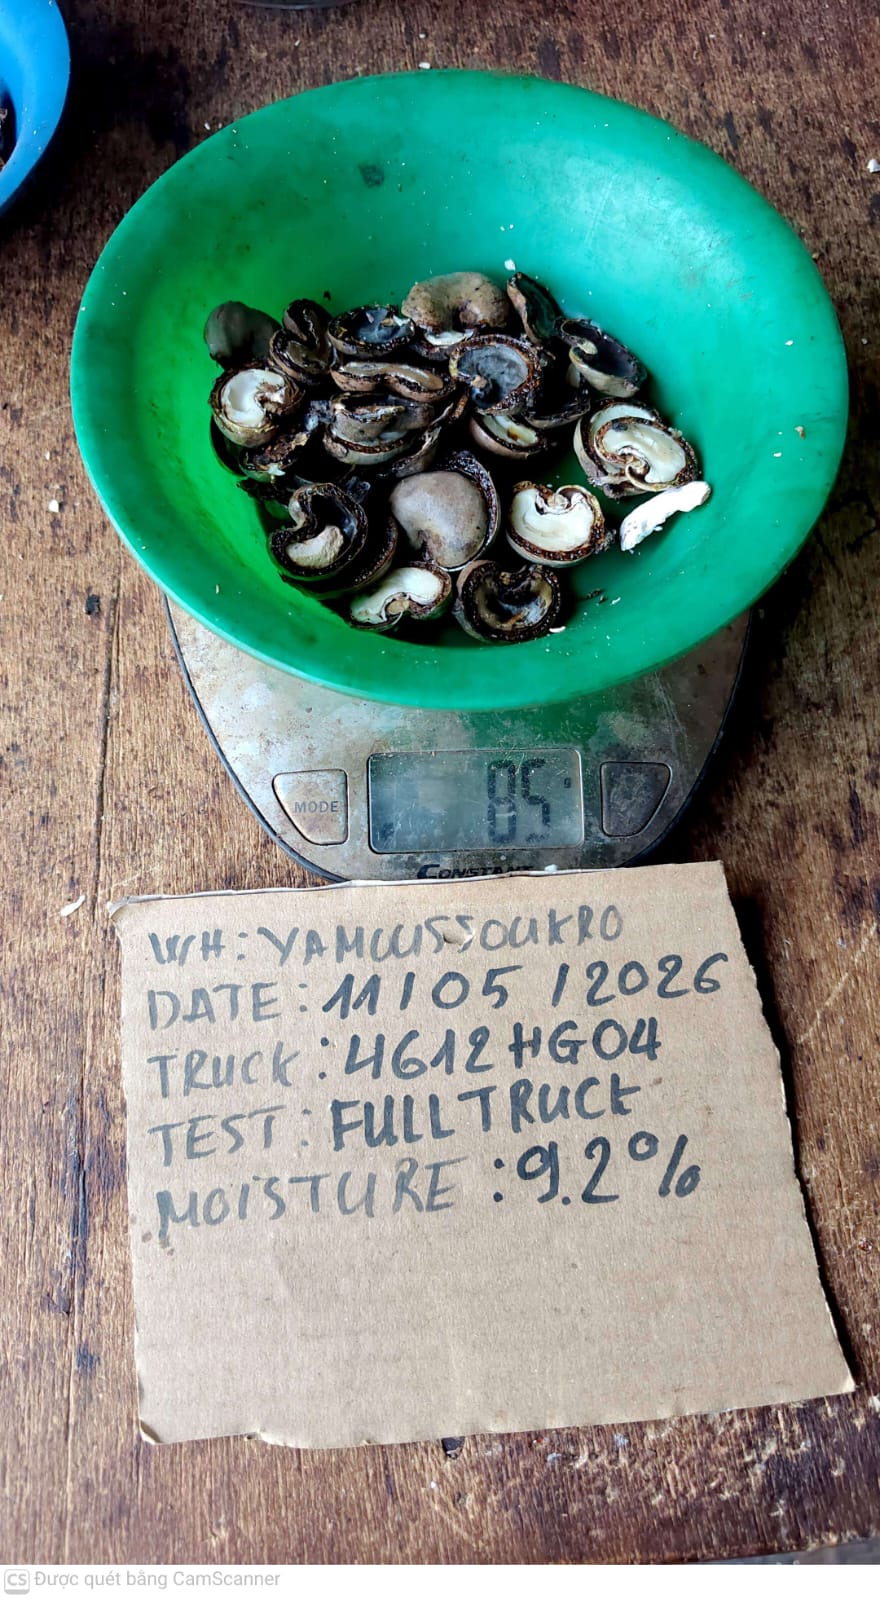 MODE
85 g
CONSTANT
WH: YAMOUSSOUKRO
DATE: 11/05/2026
TRUCK: 4612HG04
TEST: FULL TRUCK
MOISTURE: 9.2%
CS Được quét bằng CamScanner